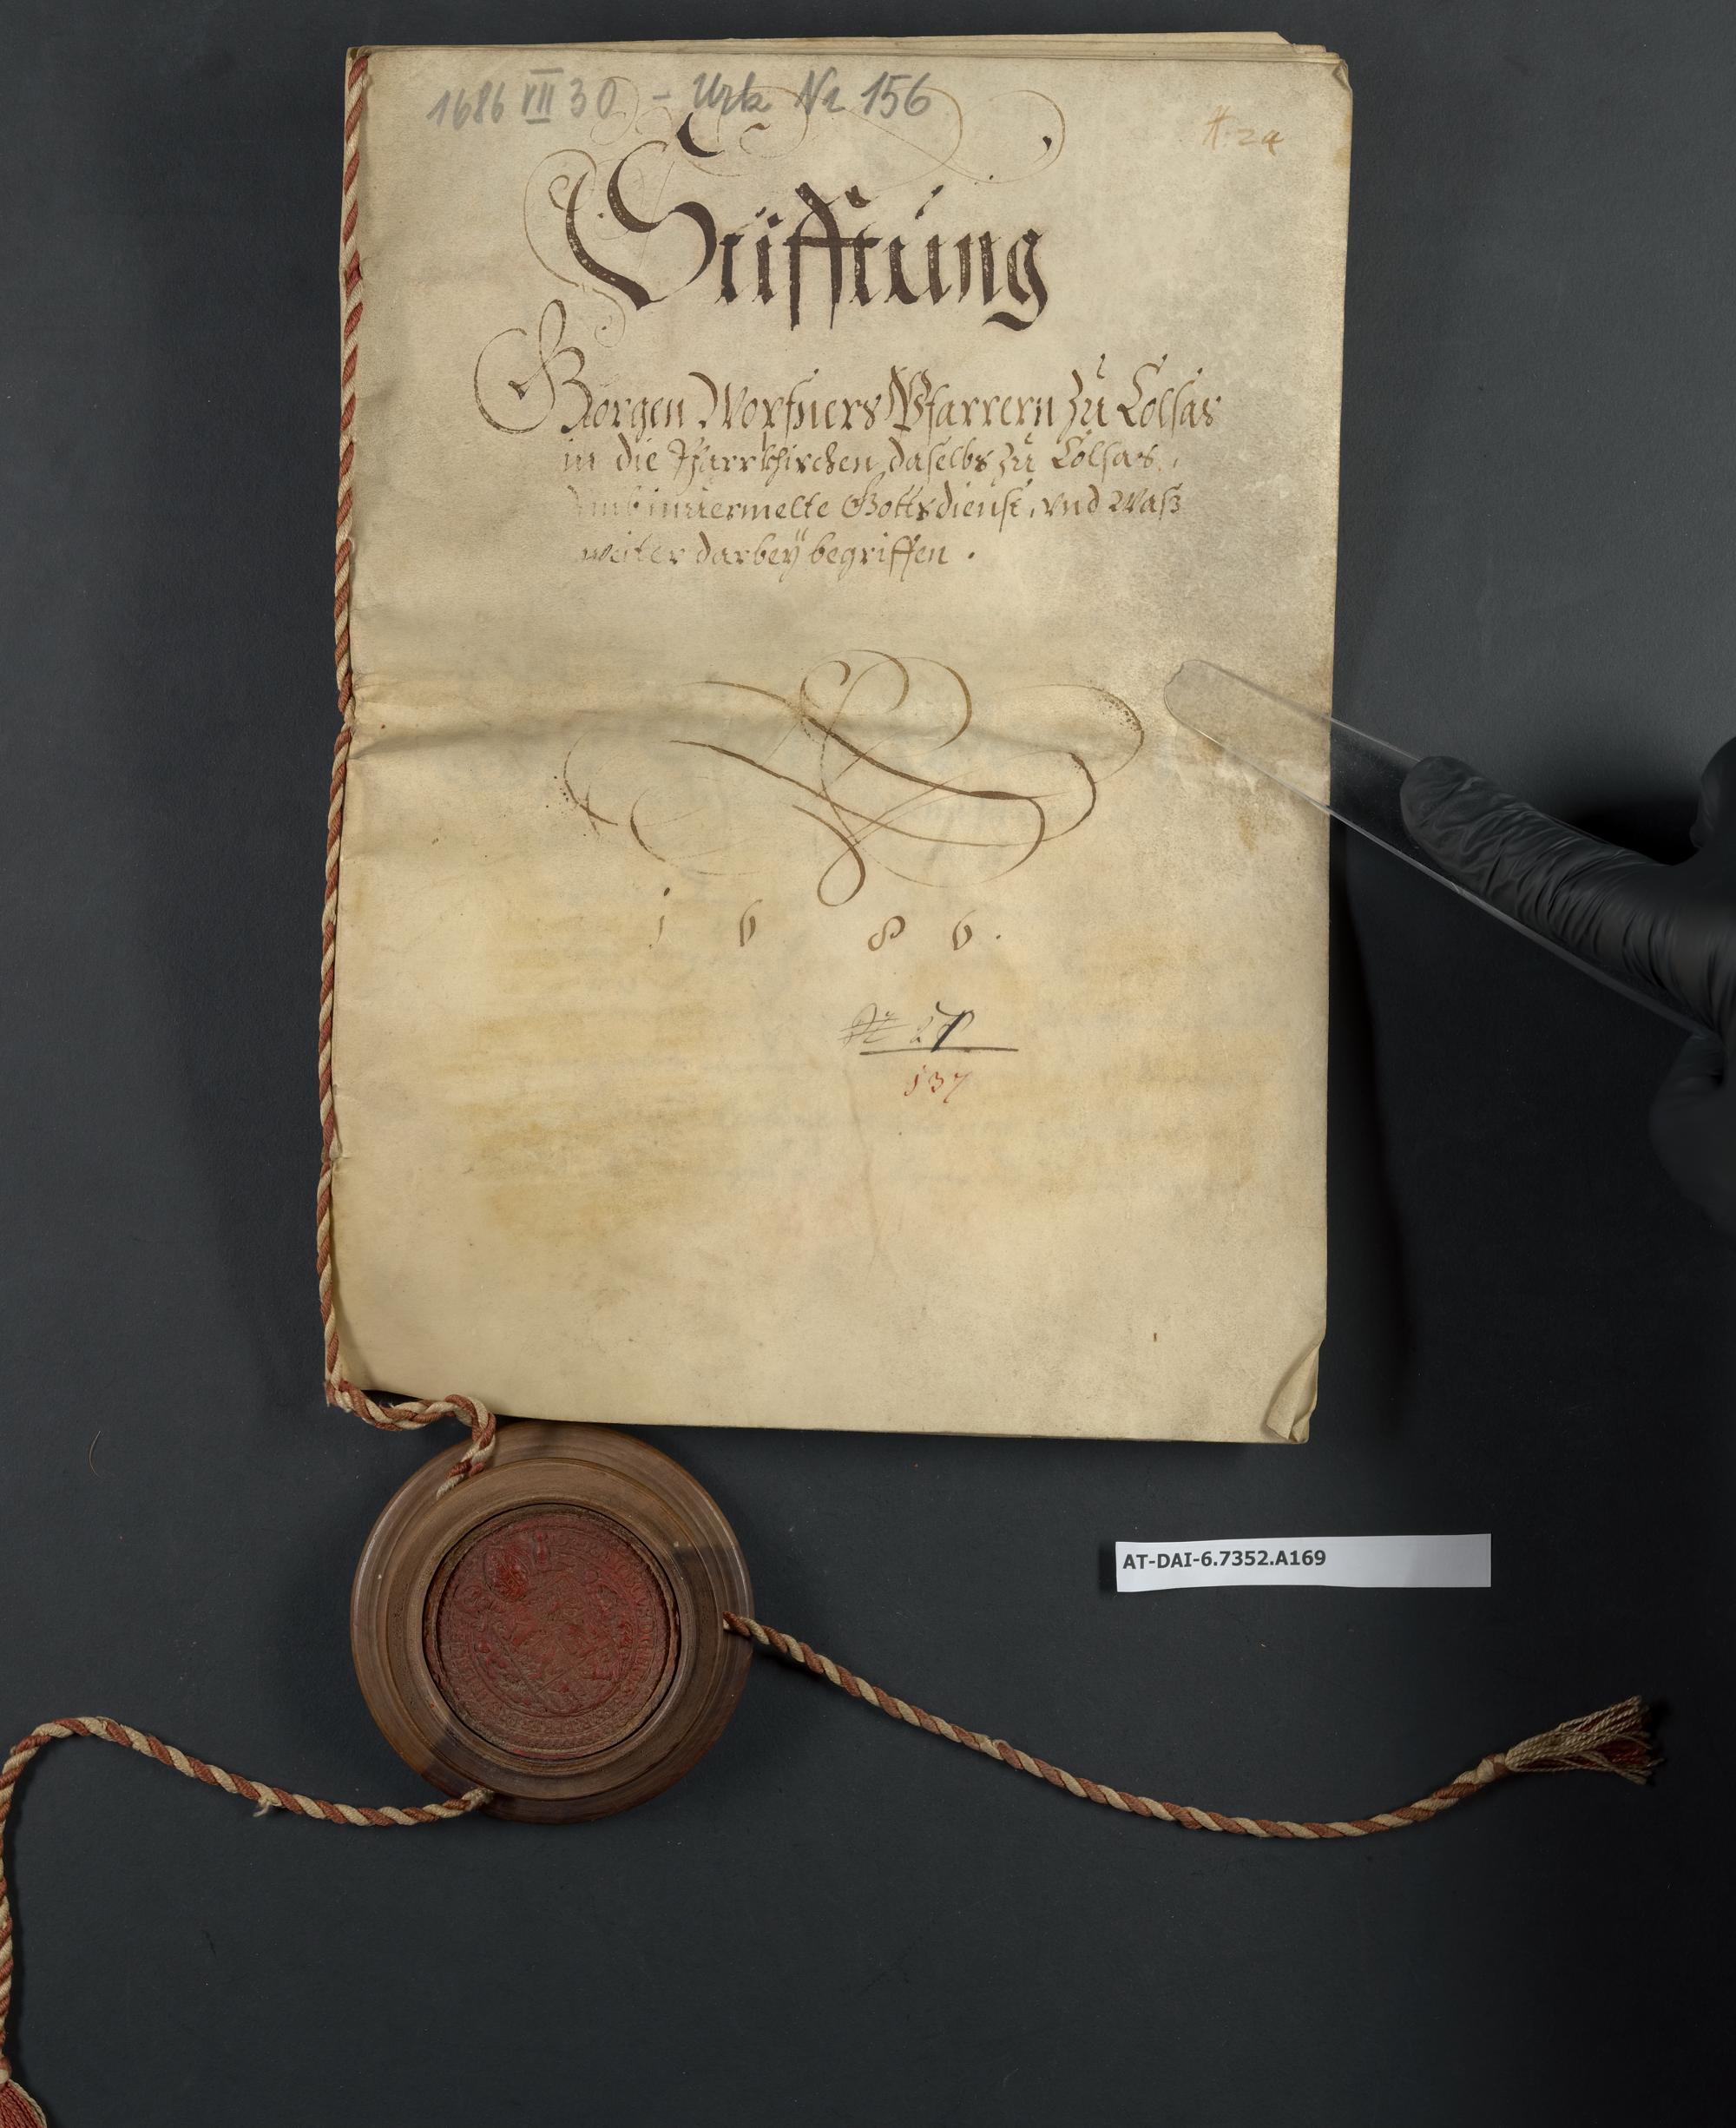 1686 VII 30 - Urk Nr 156
Stifftung
Georgen Pfarrern zu Colsas
in die Pfarrkhirchen daselbs zu Colsas,
umb inuermelte Gottsdienst, vnd Waß
weiter darbeÿ begriffen.
1686.
137
AT-DAI-6.7352.A169